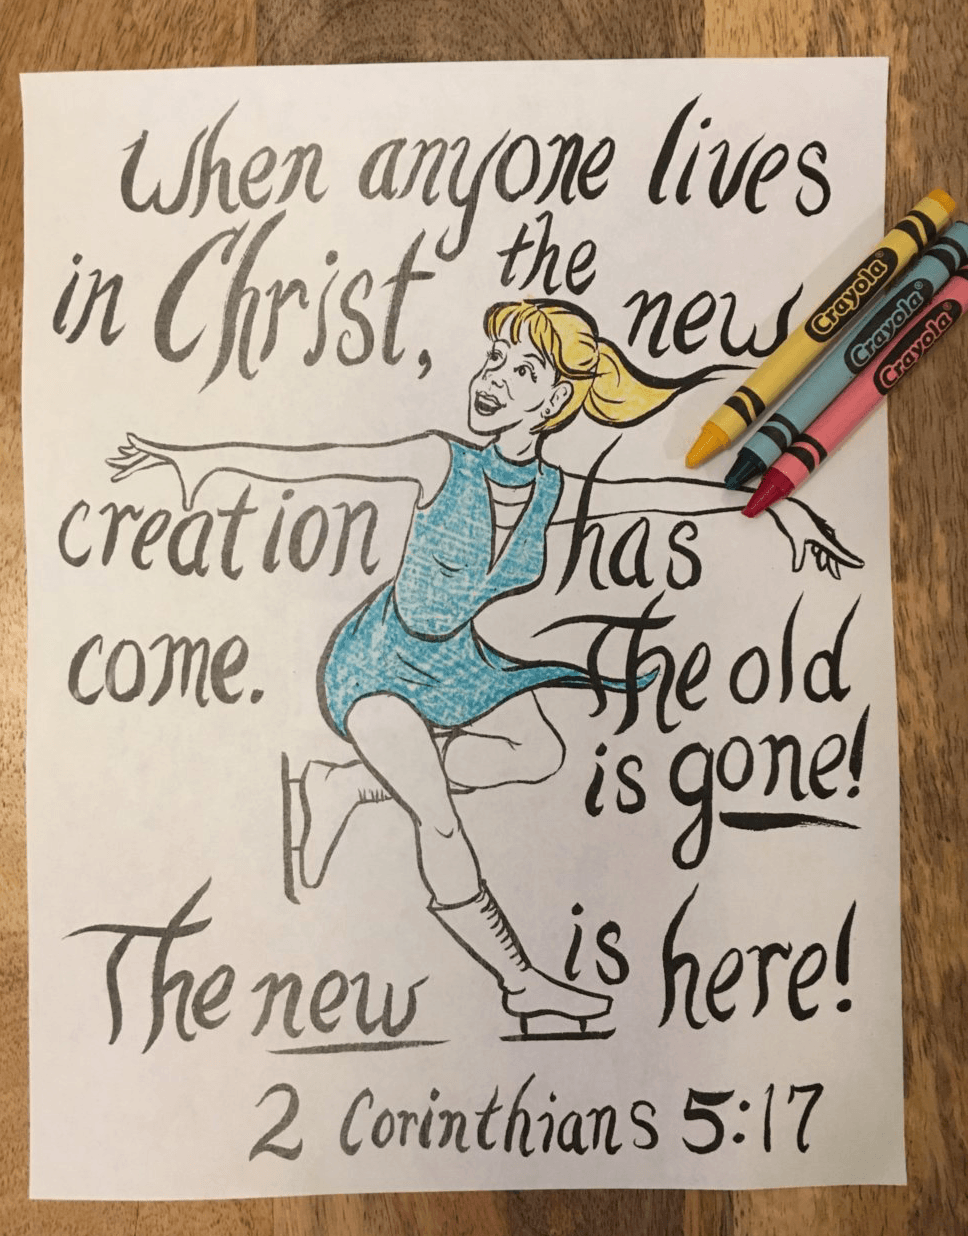 When anyone lives
in Christ, the new
creation has
come. The old
is gone!
The new is here!
2 Corinthians 5:17
Crayola
Crayola
Crayola